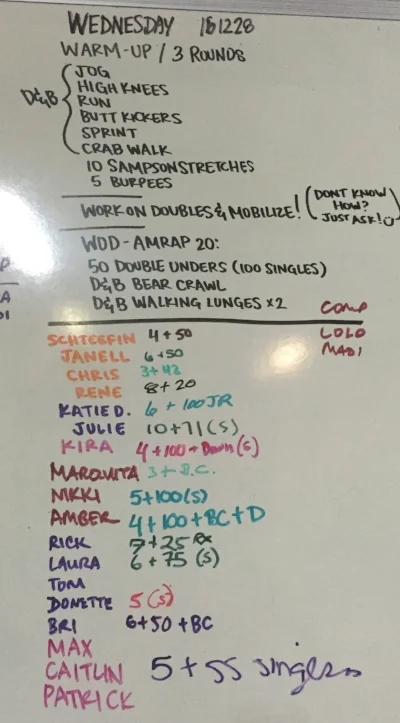 WEDNESDAY 181228
WARM-UP / 3 ROUNDS
D&B
JOG
HIGH KNEES
RUN
BUTT KICKERS
SPRINT
CRAB WALK
10 SAMPSON STRETCHES
5 BURPEES
WORK ON DOUBLES & MOBILIZE! (DONT KNOW HOW? JUST ASK!)
WOD - AMRAP 20:
50 DOUBLE UNDERS (100 SINGLES)
D&B BEAR CRAWL
D&B WALKING LUNGES x2
COMP
LOLO
MADI
P
A
DI
SCHTEFFIN 4+50
JANELL 6+50
CHRIS 3+42
RENE 8+20
KATIE D. 6 + 100 JR
JULIE 10+71(S)
KIRA 4+100+Down(S)
MARQUITA 3+B.C.
NIKKI 5+100(S)
AMBER 4+100+BC+D
RICK 7+25 Rx
LAURA 6+75 (S)
TOM
DONETTE 5(S)
BRI 6+50+BC
MAX
CAITLIN 5+55 singles
PATRICK